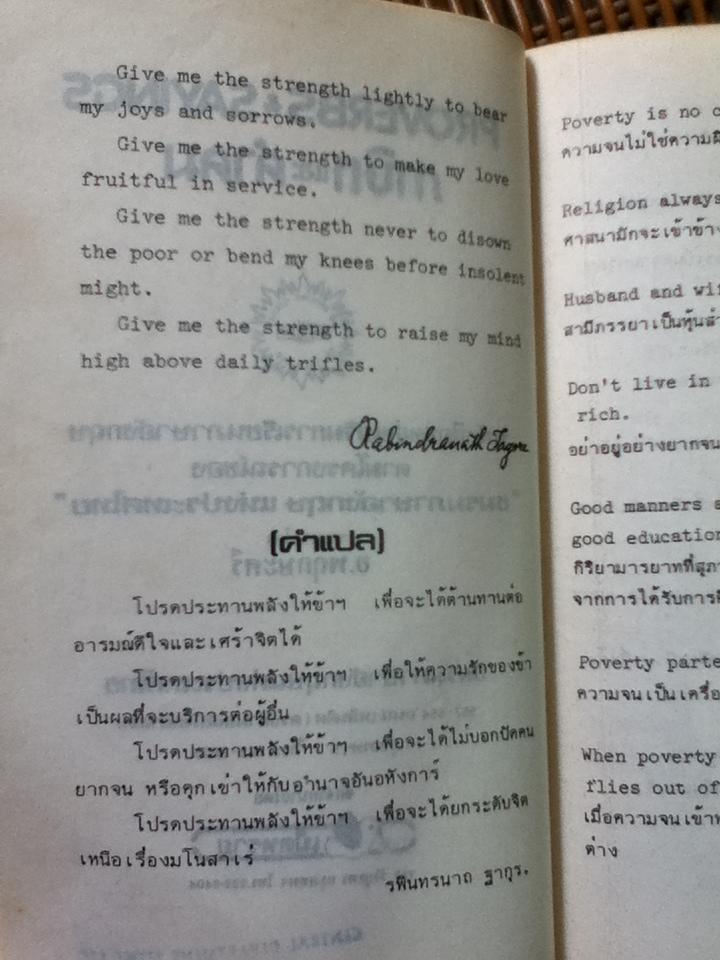 Give me the strength lightly to bear
my joys and sorrows.
Give me the strength to make my love
fruitful in service.
Give me the strength never to disown
the poor or bend my knees before insolent
might.
Give me the strength to raise my mind
high above daily trifles.
Rabindranath Tagore
(คำแปล)
โปรดประทานพลังให้ข้าฯ เพื่อจะได้ต้านทานต่อ
อารมณ์ดีใจและเศร้าจิตได้
โปรดประทานพลังให้ข้าฯ เพื่อให้ความรักของข้า
เป็นผลที่จะบริการต่อผู้อื่น
โปรดประทานพลังให้ข้าฯ เพื่อจะได้ไม่บอกปัดคน
ยากจน หรือคุกเข่าให้กับอำนาจอันอหังการ์
โปรดประทานพลังให้ข้าฯ เพื่อจะได้ยกระดับจิต
เหนือเรื่องมโนสาเร่
รพินทรนาถ ฐากูร.
Poverty is no
ความจนไม่ใช่ความ
Religion always
ศาสนามักจะเข้าข้าง
Husband and
สามีภรรยาเป็นหุ้น
Don't live in
rich.
อย่าอยู่อย่างยากจน
Good manners
good education
กิริยามารยาทที่
จากการได้รับการ
Poverty
ความจนเป็น
When poverty
flies out of
เมื่อความจนเข้า
ต่าง